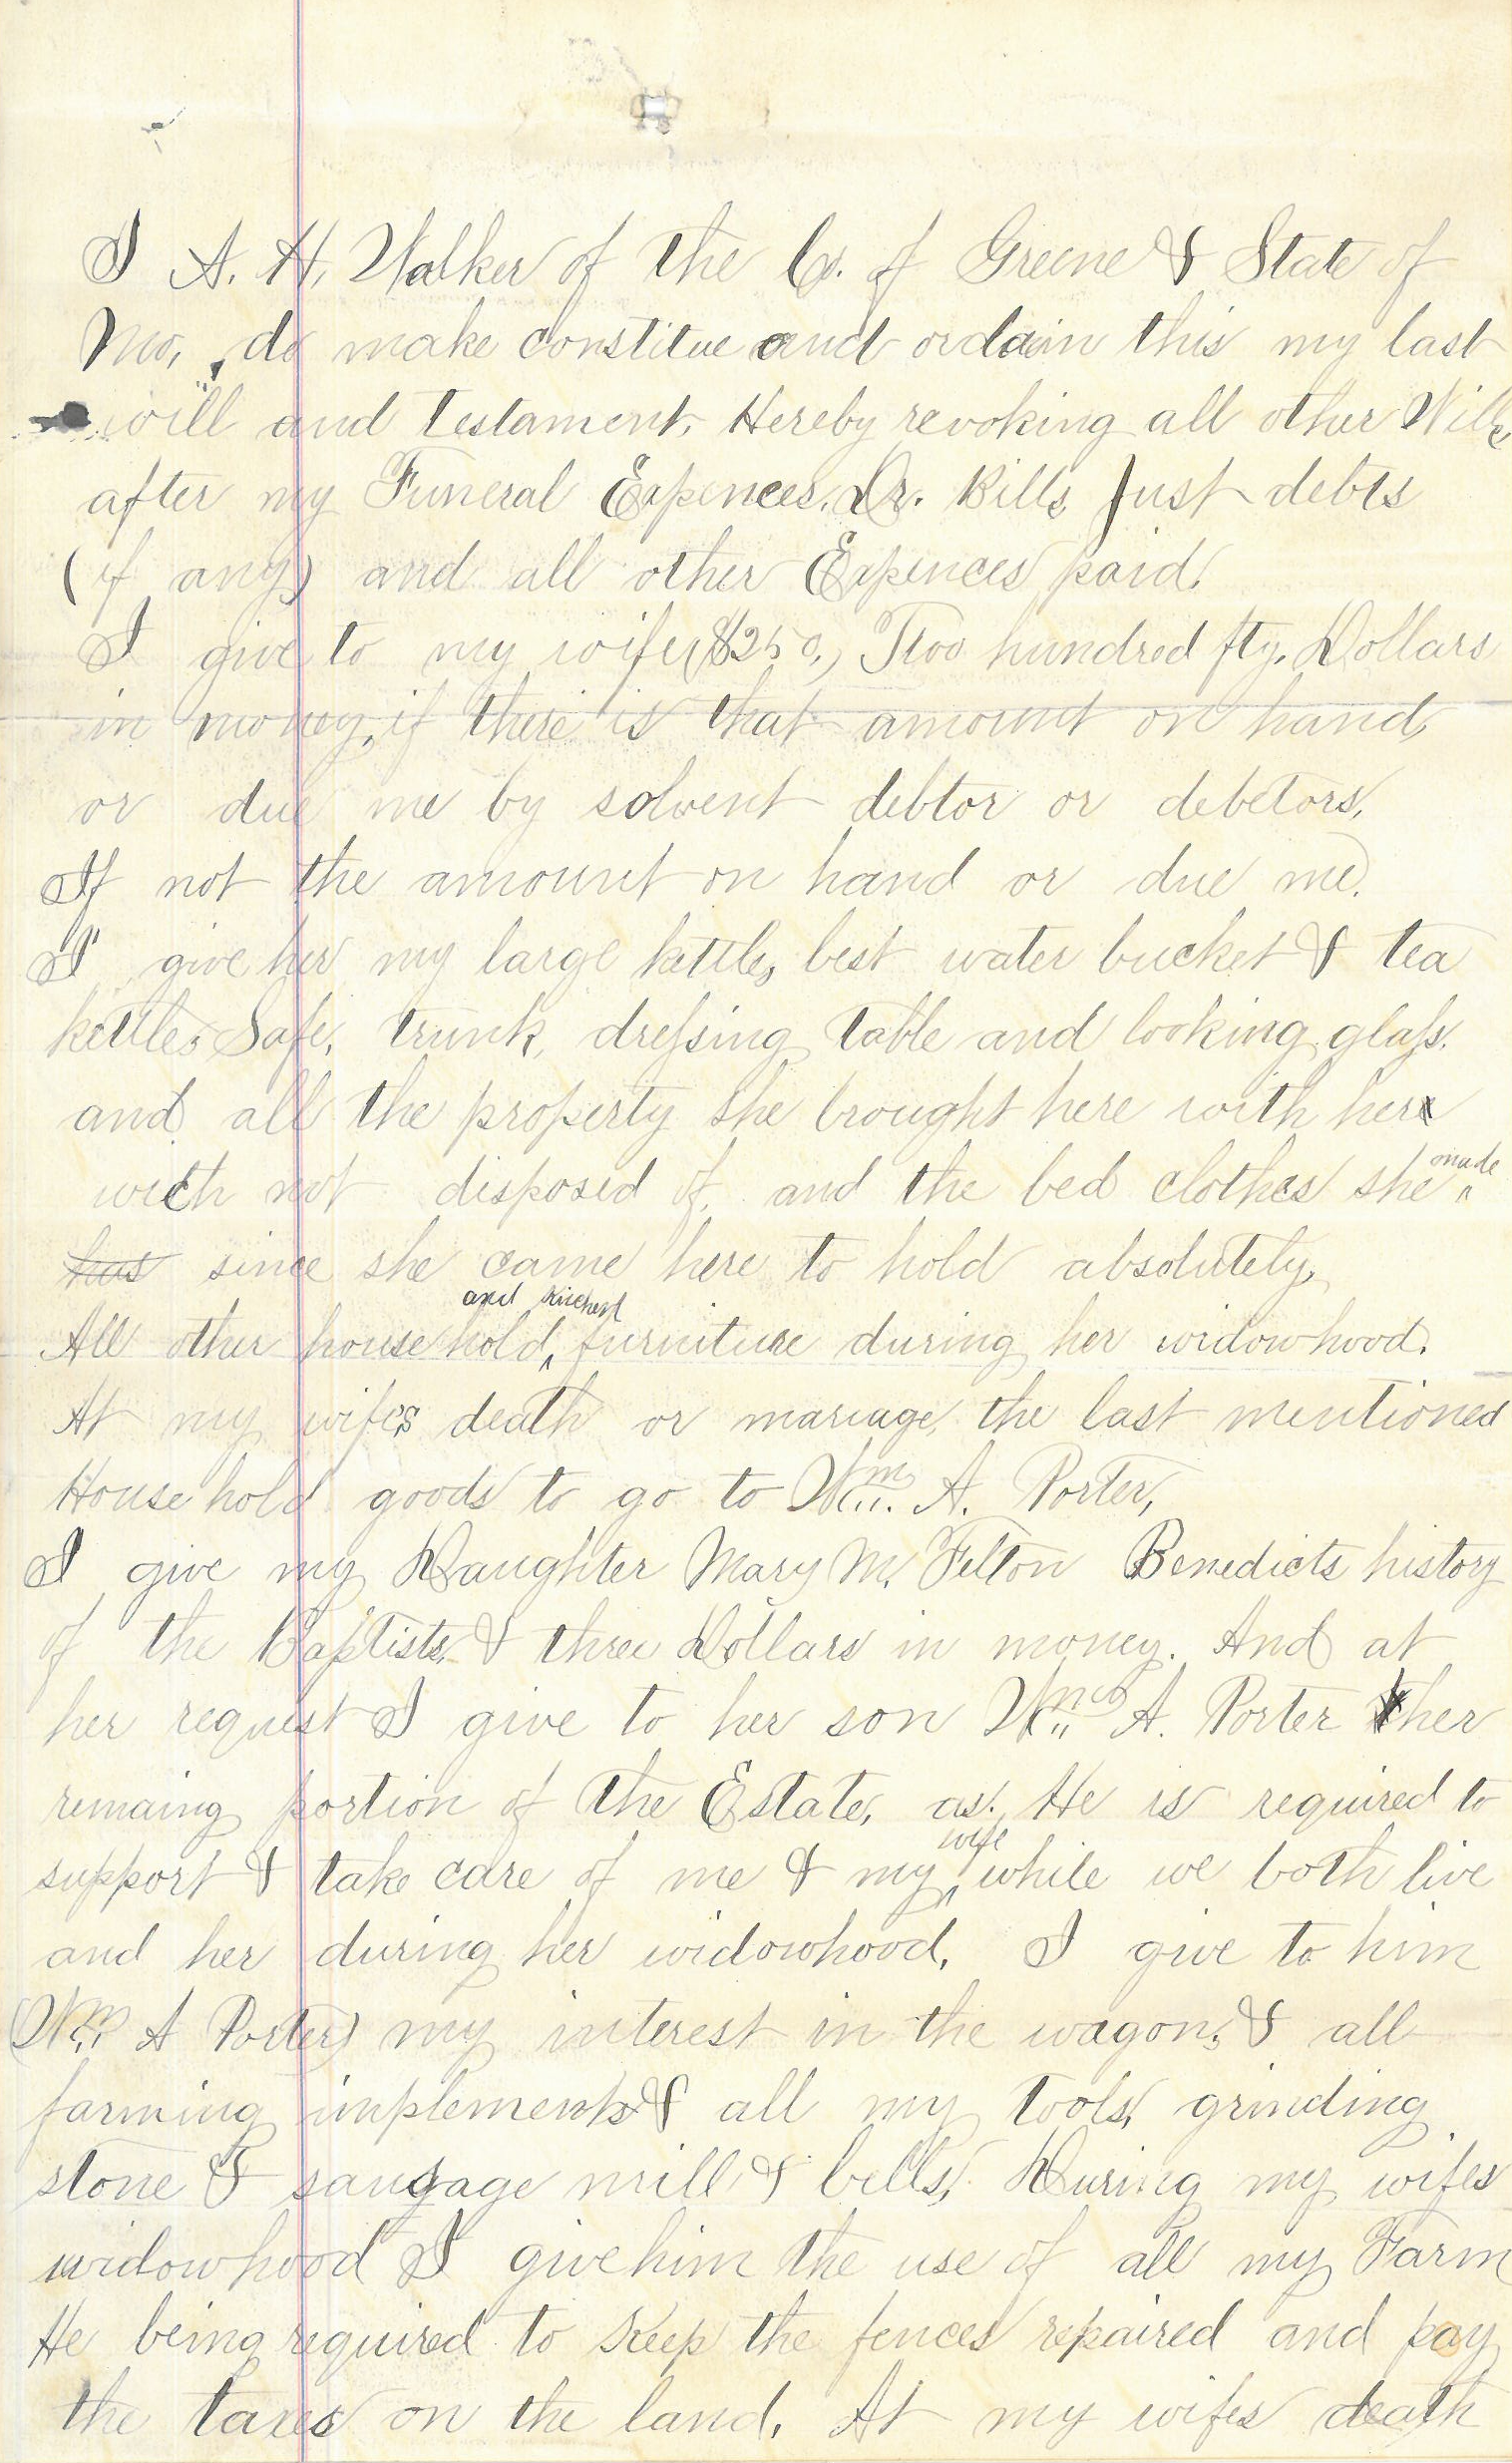 I A. H. Walker of the Co. of Greene & State of
Mo, do make constitue and ordain this my last
will and Testament, Hereby revoking all other Wills
after my Funeral Expences, Dr. Bills Just debts
(if any) and all other Expences paid.
I give to my wife ($250,) Two hundred fty, Dollars
in money, if there is that amount on hand,
or due me by solvent debtor or debetors,
If not the amount on hand or due me.
I give her my large kettle, best water bucket & tea
kettle, Safe, trunk, dressing table and looking glass.
and all the property she brought here with her
wich not disposed of, and the bed clothes she made
has since she came here to hold absolutely,
All other household, and kichen furniture during her widowhood.
At my wifes death or mariage, the last mentioned
House hold goods to go to Wm. A. Porter,
I give my Daughter Mary M. Felton Benedicts history
of the Baptists, & three Dollars in money. And at
her request I give to her son Wm. A. Porter her
remaing portion of the Estate, as. He is required to
support & take care of me & my wife while we both live
and her during her widowhood, I give to him
(Wm. A Porter) my interest in the wagon, & all
farming implements & all my tools, grinding
stone & sausage mill & bells, During my wifes
widowhood I give him the use of all my Farm
He being required to Keep the fences repaired and pay
the taxes on the land, At my wifes death